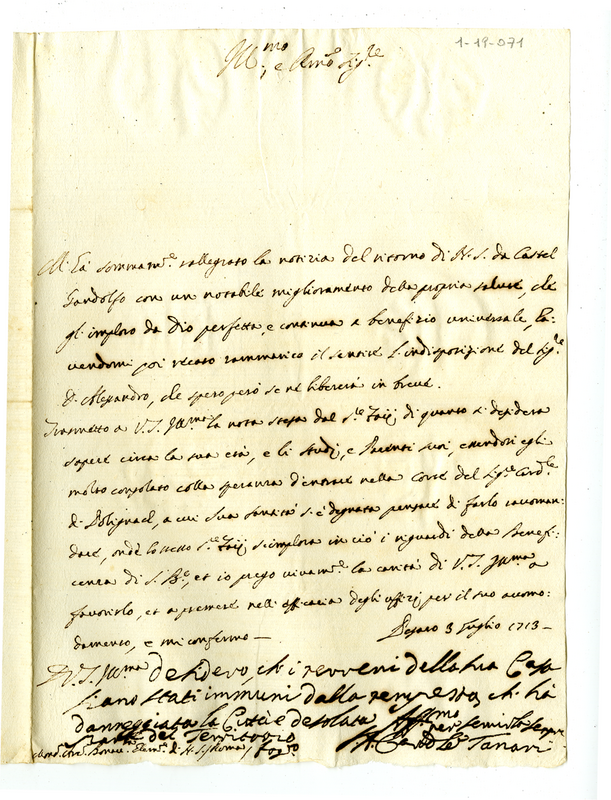 1-19-071
Ill.mo e Rmo Sig.re
Mi hà sommam.e rallegrato la notizia del ritorno di N. S. da Castel
Gandolfo con un notabile miglioramento della propria salute, che
gli imploro da Dio perfetta, e continua a benefizio universale, ha-
vendomi poi recato rammarico il sentire l'indisposizione del Sig.re
D. Alexandro, che spero però se ne libererà in breve.
Trasmetto a V. S. Ill.ma la nota stesa dal S.re di quanto si desidera
sapere circa la sua età, e li studj, e Parenti suoi, essendosi egli
molto consolato colla speranza d'entrare nella Corte del Sig.re Card.le
di Polignach, a cui Sua Santità s'è degnata pensare di farlo raccoman-
dare, onde lo stesso S.re s'implora in ciò i riguardi della Benefi-
cenza di S. B.e, et io prego vivam.e la carità di V. S. Ill.ma a
favorirlo, et a premere nell'efficacia degli uffizj per il suo accomo-
damento, e mi confermo —
Pesaro 3 Luglio 1713 —
Di V. S. Ill.ma desidero, che i terreni della sua Casa
siano stati immuni dalla tempesta, ch'hà
danneggiata la Città e desolata Aff.mo
parte del Territorio per servirla sempre
A. Card.le Tanari
S. Roma